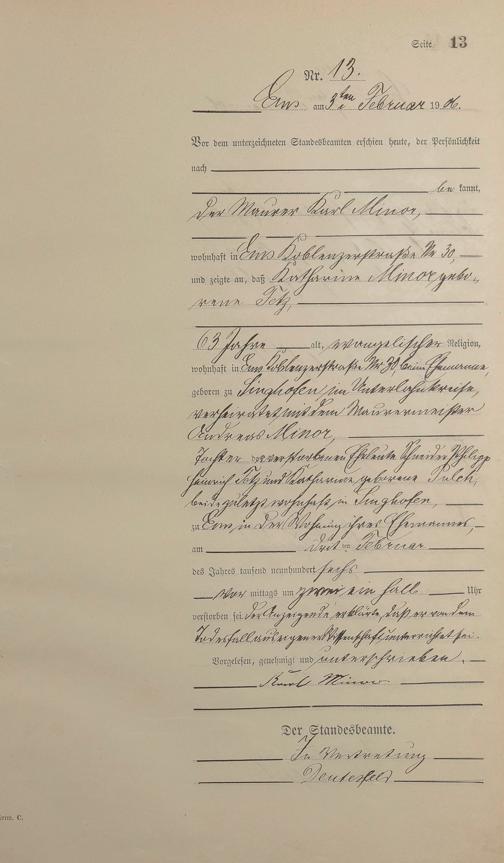 Seite 13
Nr. 13.
Ems am 3ten Februar 1906.
Vor dem unterzeichneten Standesbeamten erschien heute, der Persönlichkeit
nach
be kannt,
der Maurer Karl Minor,
wohnhaft in Ems Koblenzerstraße Nr 30,
und zeigte an, daß Katharine Minor gebo-
rene Fetz,
63 Jahre alt, evangelischer Religion,
wohnhaft in Ems Koblenzerstraße Nr 30, beim Ehemanne,
geboren zu Singhofen im Unterlahnkreise,
verheiratet mit dem Maurermeister
Andreas Minor,
Tochter der verstorbenen Eheleute Schneider Philipp
Heinrich Fetz und Katharine geborene
beide zuletzt wohnhaft in Singhofen,
zu Ems, in der Wohnung ihres Ehemannes,
am drei ten Februar
des Jahres tausend neunhundert sechs
vor mittags um zwei ein halb Uhr
verstorben sei. Der Anzeigende erklärte, daß er von dem
Todesfall aus eigener Wissenschaft unterrichtet sei.
Vorgelesen, genehmigt und unterschrieben.
Karl Minor
Der Standesbeamte.
In Vertretung
C.